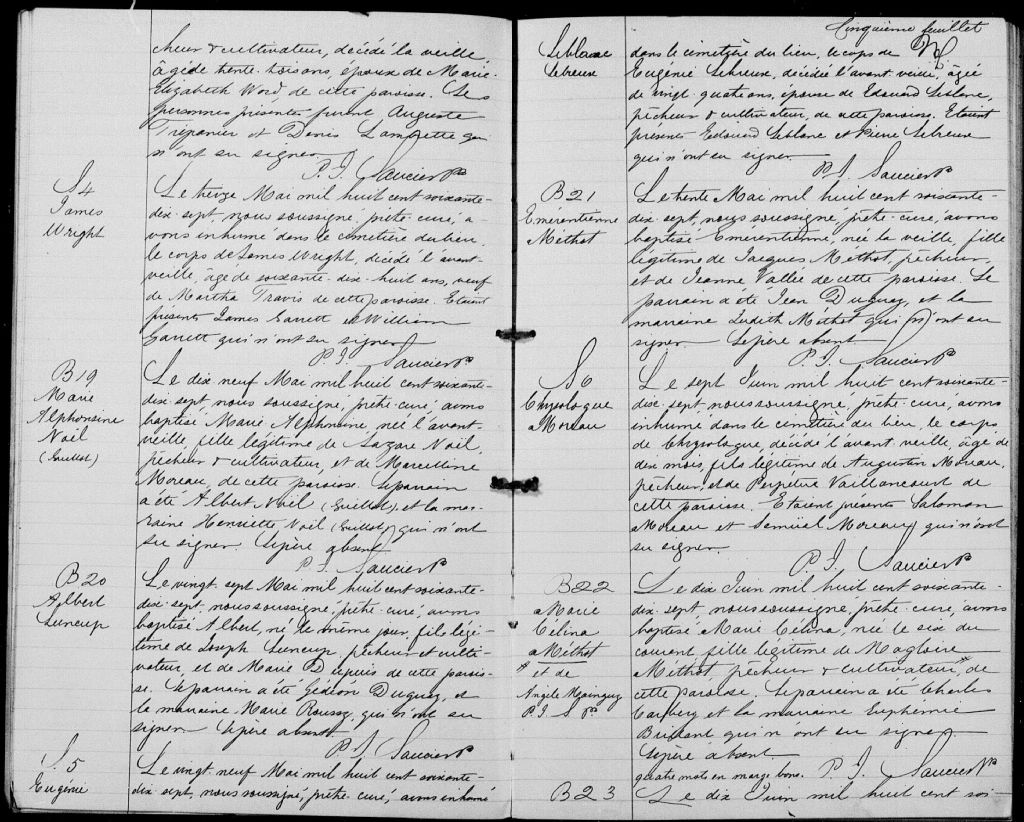 cheur & cultivateur, décédé la veille
âgé de trente-trois ans, époux de Marie-
Elizabeth Word, de cette paroisse. Les
personnes présentes furent Auguste
Trépanier et Denis qui
n'ont su signer.
P. J. Saucier Ptre
S4
James
Wright
Le treize Mai mil huit cent soixante-
dix-sept, nous soussigné, prêtre-curé, a-
vons inhumé dans le cimetière du lieu,
le corps de James Wright, décédé l'avant-
veille, âgé de soixante-dix-huit ans, veuf
de Martha Travis de cette paroisse. Etaient
présents James Garrett et William
Garrett qui n'ont su signer.
P. J. Saucier Ptre
B19
Marie
Alphonsine
Noël
(Guillot)
Le dix neuf Mai mil huit cent soixante-
dix-sept, nous soussigné, prêtre-curé, avons
baptisé Marie Alphonsine, née l'avant-
veille, fille légitime de Lazare Noël,
pêcheur & cultivateur, et de Marcelline
Moreau, de cette paroisse. Le parrain
a été Albert Noël (Guillot), et la mar-
raine Henriette Noël (Guillot) qui n'ont
su signer. Le père absent.
P. J. Saucier Ptre
B20
Albert
Luncup
Le vingt-sept Mai mil huit cent soixante-
dix-sept, nous soussigné, prêtre-curé, avons
baptisé Albert, né le même jour, fils légi-
time de Joseph Luncup, pêcheur et culti-
vateur, et de Marie Dupuis de cette parois-
se. Le parrain a été Gédéon Duguay, et
la marraine Marie Roussy, qui n'ont su
signer. Le père absent
P. J. Saucier Ptre
S5
Eugénie
Le vingt-neuf Mai mil huit cent soixante-
dix-sept, nous soussigné, prêtre-curé, avons inhumé
Cinquième feuillet
Leblanc
Lebreux
dans le cimetière du lieu, le corps de
Eugénie Lebreux, décédée l'avant-veille, âgée
de vingt-quatre ans, épouse de Edouard Leblanc,
pêcheur & cultivateur, de cette paroisse. Etaient
présents Edouard Leblanc et Pierre Lebreux
qui n'ont su signer.
P. J. Saucier Ptre
B21
Emérentienne
Méthot
Le trente Mai mil huit cent soixante-
dix-sept, nous soussigné, prêtre-curé, avons
baptisé Emérentienne, née la veille, fille
légitime de Jacques Méthot, pêcheur,
et de Jeanne Vallée de cette paroisse. Le
parrain a été Jean Duguay, et la
marraine Judith Méthot qui (n') ont su
signer. Le père absent.
P. J. Saucier Ptre
S6
Chrysologue
Moreau
Le sept Juin mil huit cent soixante-
dix-sept, nous soussigné, prêtre-curé, avons
inhumé dans le cimetière du lieu, le corps
de Chrysologue, décédé l'avant-veille, âgé de
dix mois, fils légitime de Augustin Moreau,
pêcheur, et de Perpétue Vaillancourt de
cette paroisse. Etaient présents Salomon
Moreau et Samüel Moreau, qui n'ont
su signer.
P. J. Saucier Ptre
B22
Marie
Célina
Méthot
# et de
Angèle Mainguy
P. J. S. Ptre
Le dix Juin mil huit cent soixante-
dix-sept, nous soussigné, prêtre-curé, avons
baptisé Marie Célina, née le six du
courant fille légitime de Magloire
Méthot, pêcheur & cultivateur # de
cette paroisse. Le parrain a été Charles
Carbery et la marraine Euphémie
qui n'ont su signer.
Le père absent
quatre mots en marge bons. P. J. Saucier Ptre
B23
Le dix Juin mil huit cent soi-